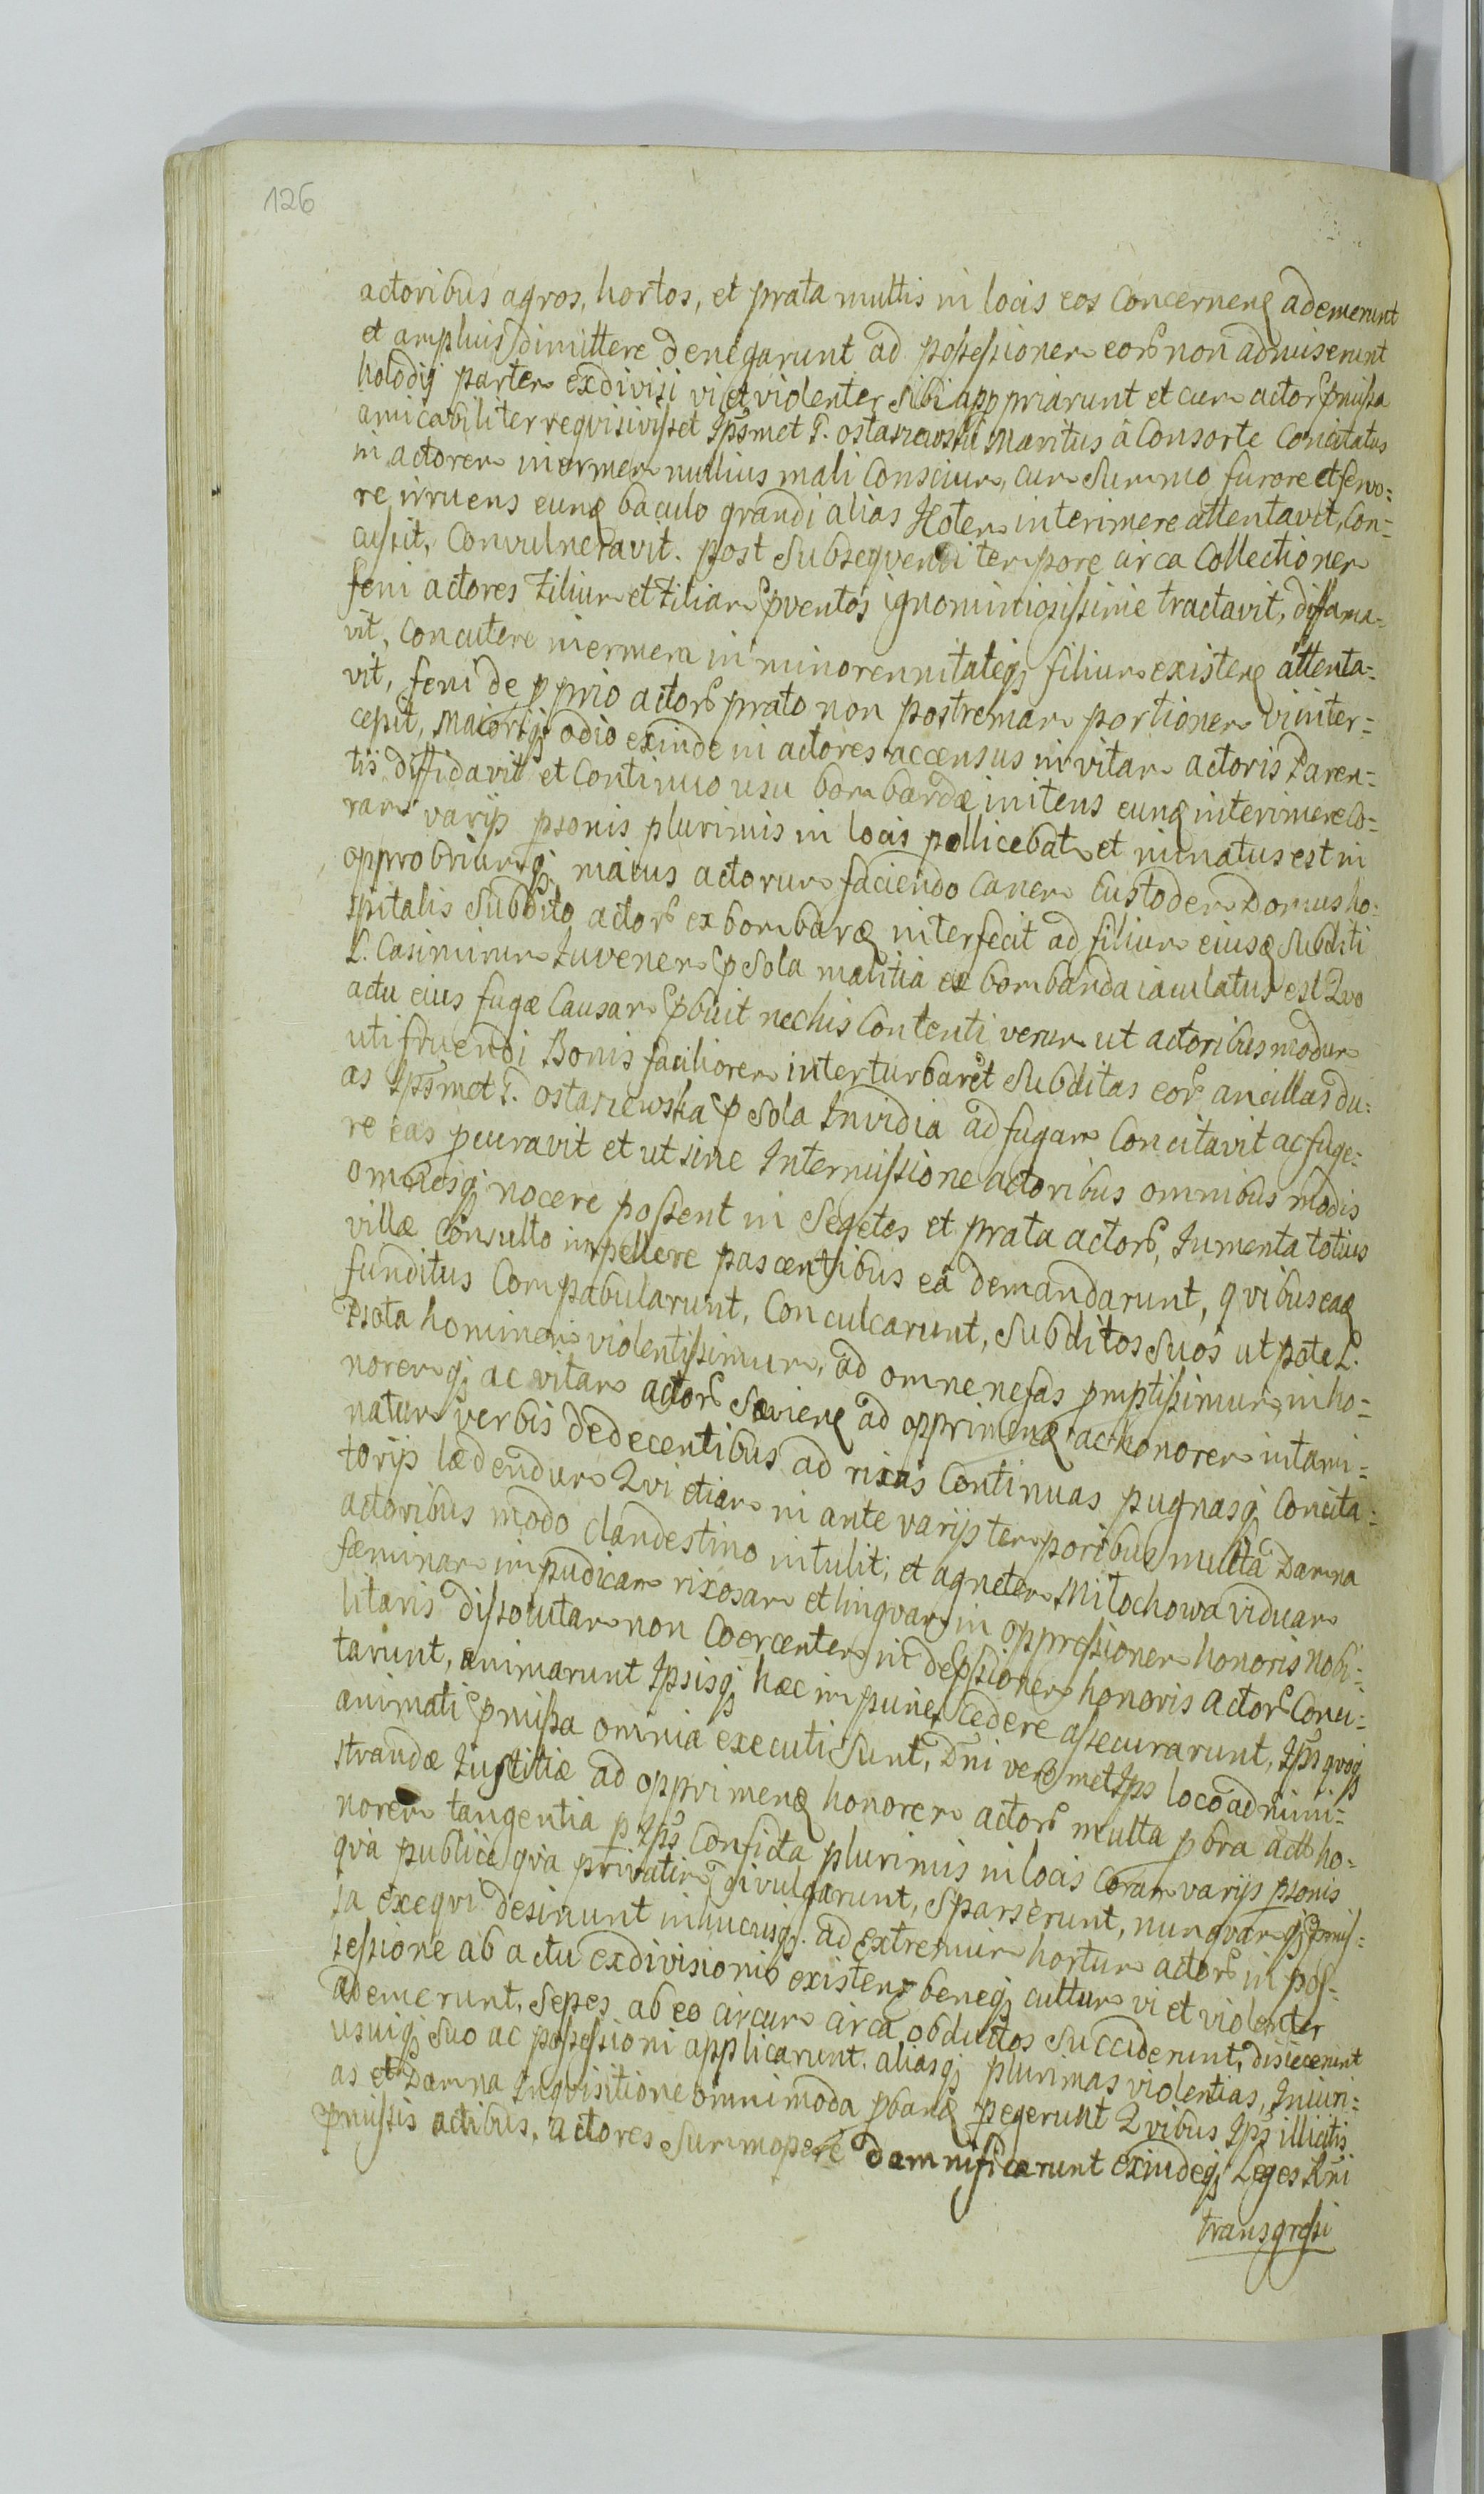 126
actoribus agros, hortos, et prata multis in locis eos Concernen ademerunt
et amplius dimittere denegarunt ad possessionem eor non admiserunt
partem exdivisi vi et violenter sibi appropriarunt et cum actor pmissa
amicabiliter reqvisivisset Ipsmet P. ostaszewski Maritus à Consorte Concitatus
in actorem inermem nullius mali Conscium, cum Summo furore et fervo=
re irruens eunq baculo grandi alias interimere attentavit, Con=
cussit, Convulneravit. post Subseqventi tempore circa Collectionem
feni actores Filium et Filiam pventos ignominiosissime tractavit, diffama=
vit, Concutere inermem in minorennitateq filium existen attenta=
vit, feni de pprio actor prato non postremam portionem vi inter=
cepit, Maioriq odio exinde in actores accensus in vitam actoris Paren=
tis diffidavit et Continuo usu bombardæ initens eunq interimere Co=
ram varijs psonis plurimis in locis pollicebat et minatus est in
opprobriumq maius actorum faciendo Canem Custodem Domus ho=
spitalis Subdito actor ex bombarda interfecit ad filium eiusd Subditi
L. Casimirum Iuvenem p Sola malitia ex bombarda iaculatus est Qvo
actu eius fugæ Causam pbuit nec his Contenti verum ut actoribus modum
uti fruendi Bonis faciliorem interturbaret Subditas eor ancillas du=
as Ipsmet P. ostaszewska p Sola Invidia ad fugam Concitavit ac fuge=
re eas pcuravit et ut sine Intermissione actoribus omnibus modis
nocere possent in Segetes et prata actor, Iumenta totius
villæ Consulto impellere pascentibus ea demandarunt, qvibus eaq
funditus Compabularunt, Conculcarunt, Subditos Suos utpote L.
hominem violentissimum, ad omne nefas pmptissimum, in ho=
noremq ac vitam actor Sævien ad opprimen ac honorem intami=
natum verbis dedecentibus ad rixas Continuas pugnasq Concita=
torijs lædendum Qvi etiam in ante varijs temporibus multa Damna
actoribus modo clandestino intulit, et agnetem Miłochowa viduam
fæminam impudicam rixosam et lingvam in oppressionem honoris Nobi=
litaris dissolutam non Coercentem in depssionem honoris actor Conci=
tarunt, animarunt Ipsisq hæc impune Cedere assecurarunt, Ips qvoq
animati pmissa omnia executi Sunt, Dni vero met Ips loco admini=
strandæ Iustitiæ ad opprimen honorem actor multa pbra act ho=
norem tangentia p Ips Conficta plurimis in locis Coram varijs psonis
qvà publice qvà privatim divulgarunt, Sparserunt, nunqvamq pmis=
sa exeqvi desinunt in hucusq. ad Extremum hortum actor in pos=
sessione ab actu exdivisionis existen beneq cultum vi et violenter
ademerunt, Sepes ab eo circum circa obductos Succiderunt, disiecerunt
usuiq suo ac possessioni applicarunt. aliasq plurimas violentias, Iniuri=
as et Damna Inqvisitione omnimoda pban pegerunt Qvibus Ips illicitis
pmissis actibus, actores Summopere damnificarunt Exindeq Leges Rni
transgressi